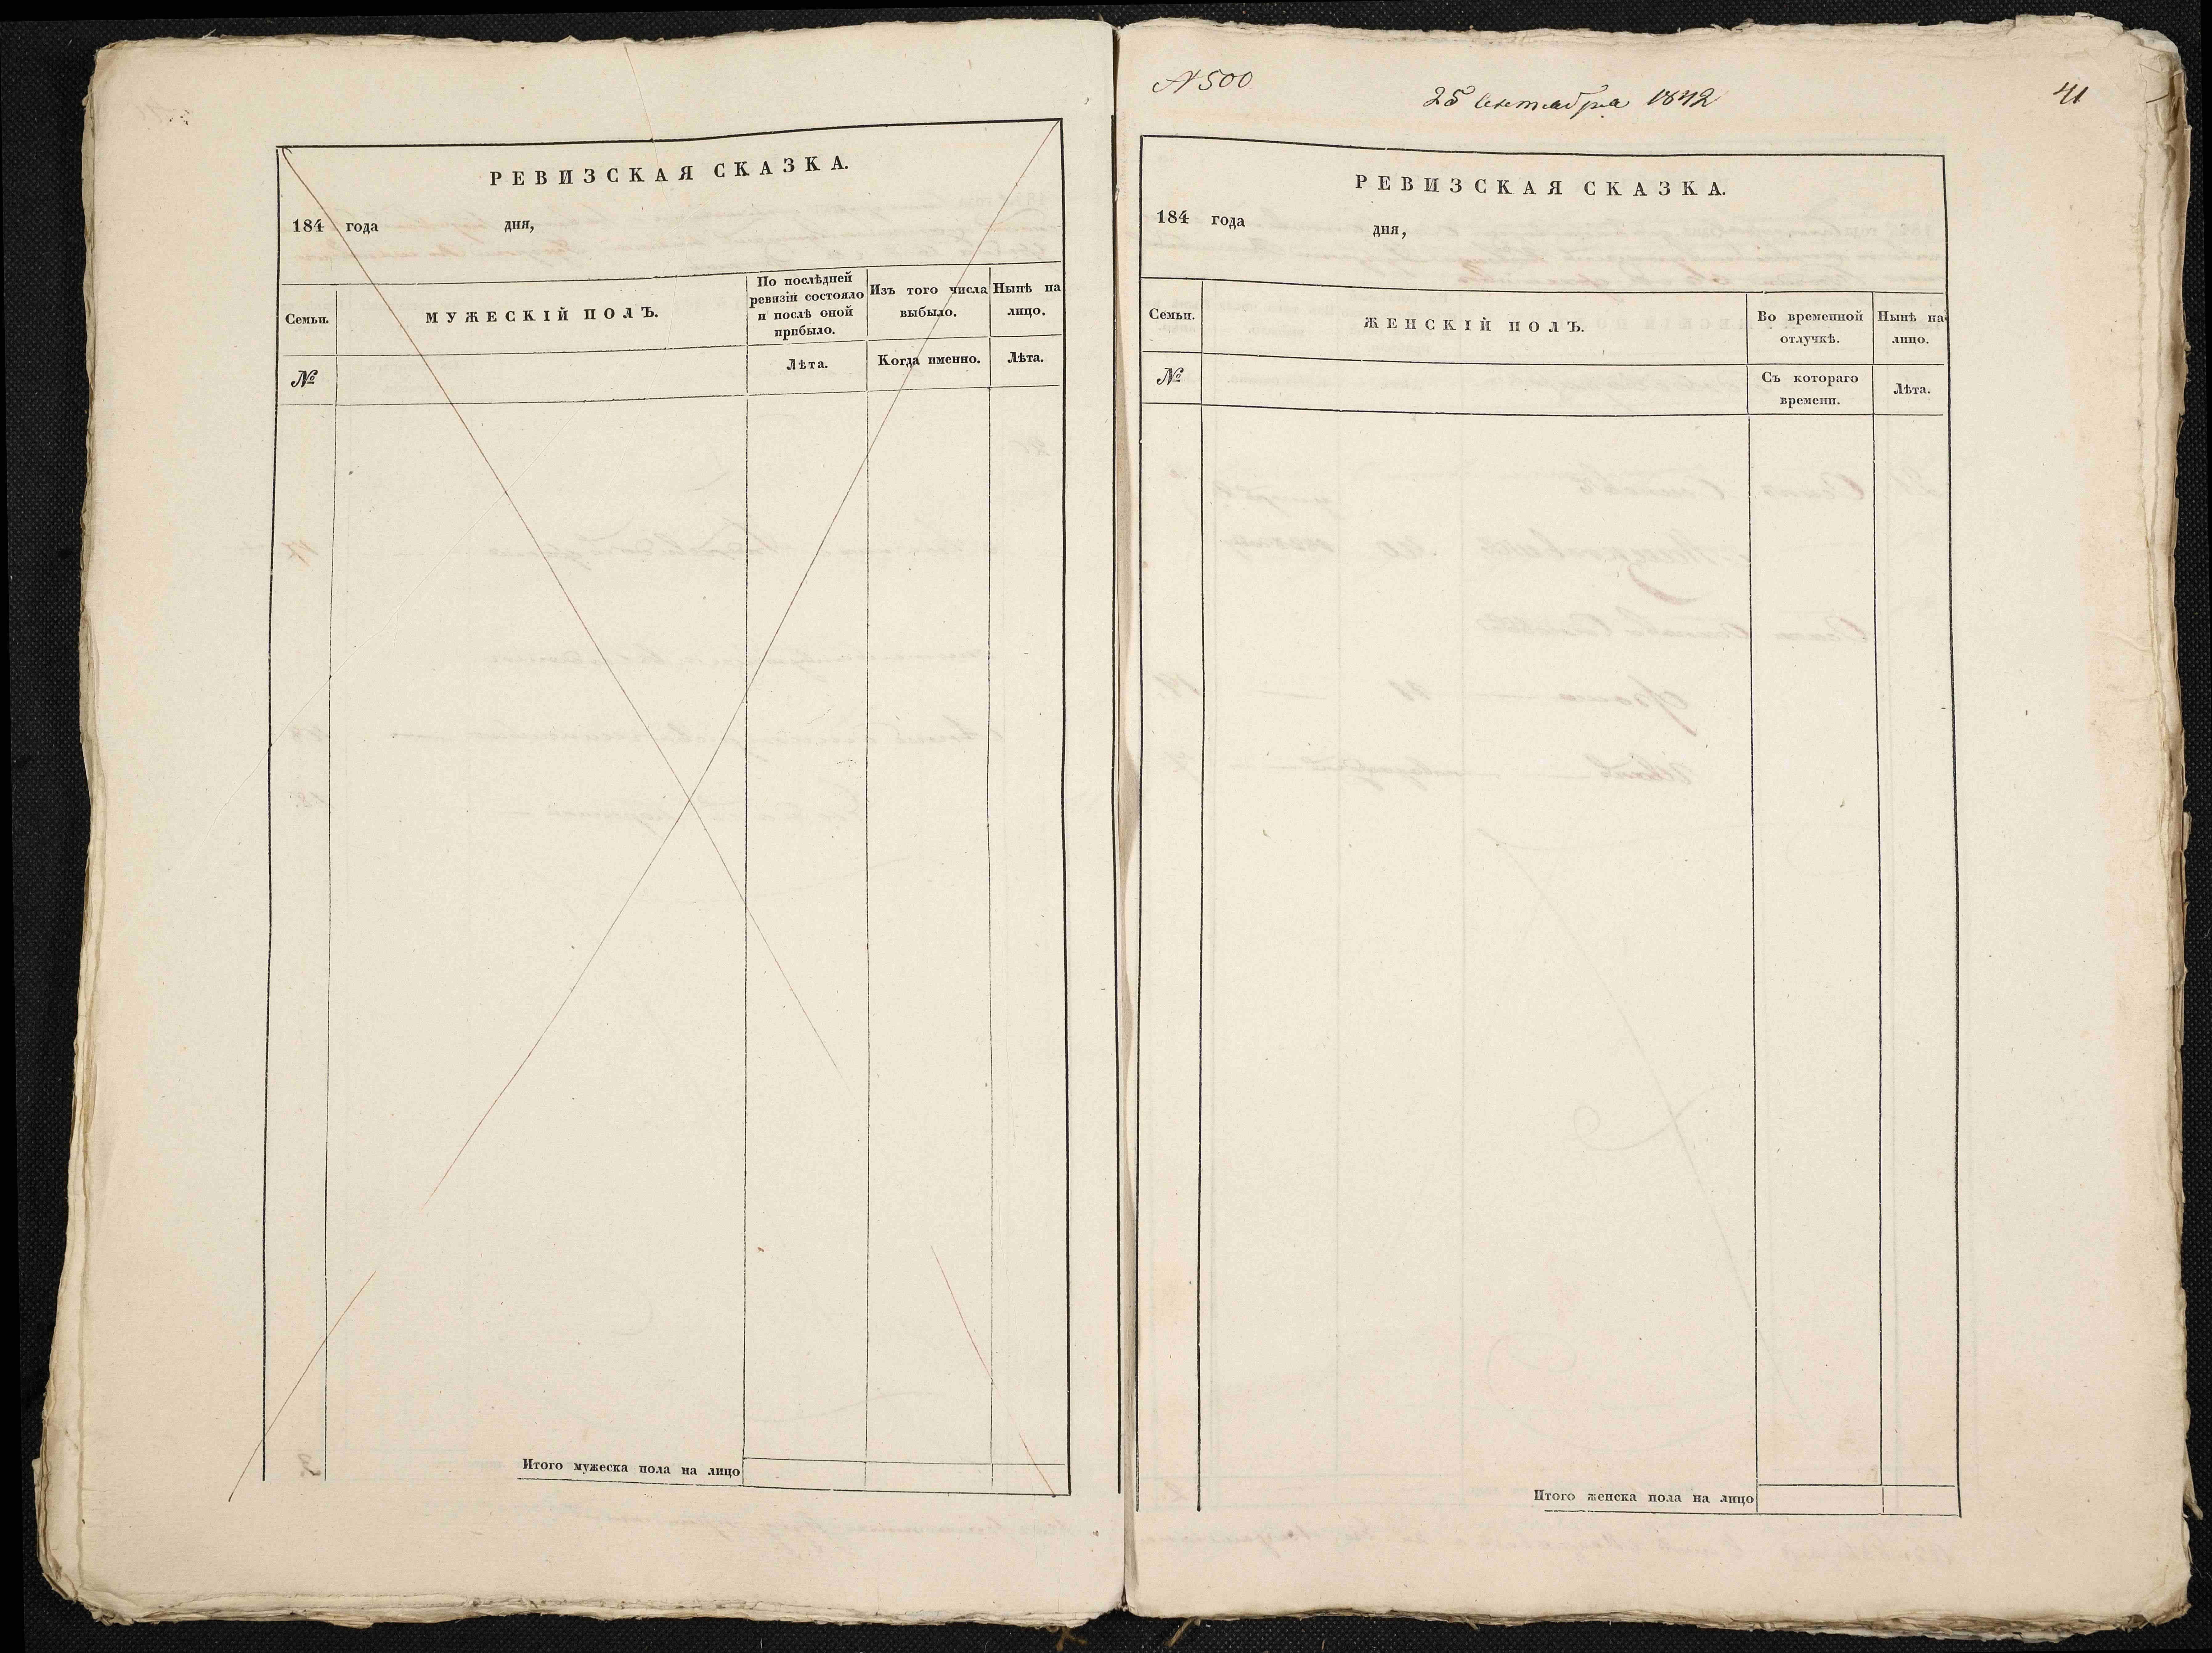 РЕВИЗСКАЯ СКАЗКА.
184 года дня,
Семьи.
МУЖЕСКІЙ ПОЛЪ.
По послѣдней
ревизіи состояло
и послѣ оной
прибыло.
Изъ того числа
выбыло.
Нынѣ на
лицо.
№
Лѣта.
Когда именно.
Лѣта.
Итого мужеска пола на лицо
№ 500
25 Сентября 1842
41
РЕВИЗСКАЯ СКАЗКА.
184 года дня,
Семьи.
ЖЕНСКІЙ ПОЛЪ.
Во временной
отлучкѣ.
Нынѣ на
лицо.
№
Съ котораго
времени.
Лѣта.
Итого женска пола на лицо